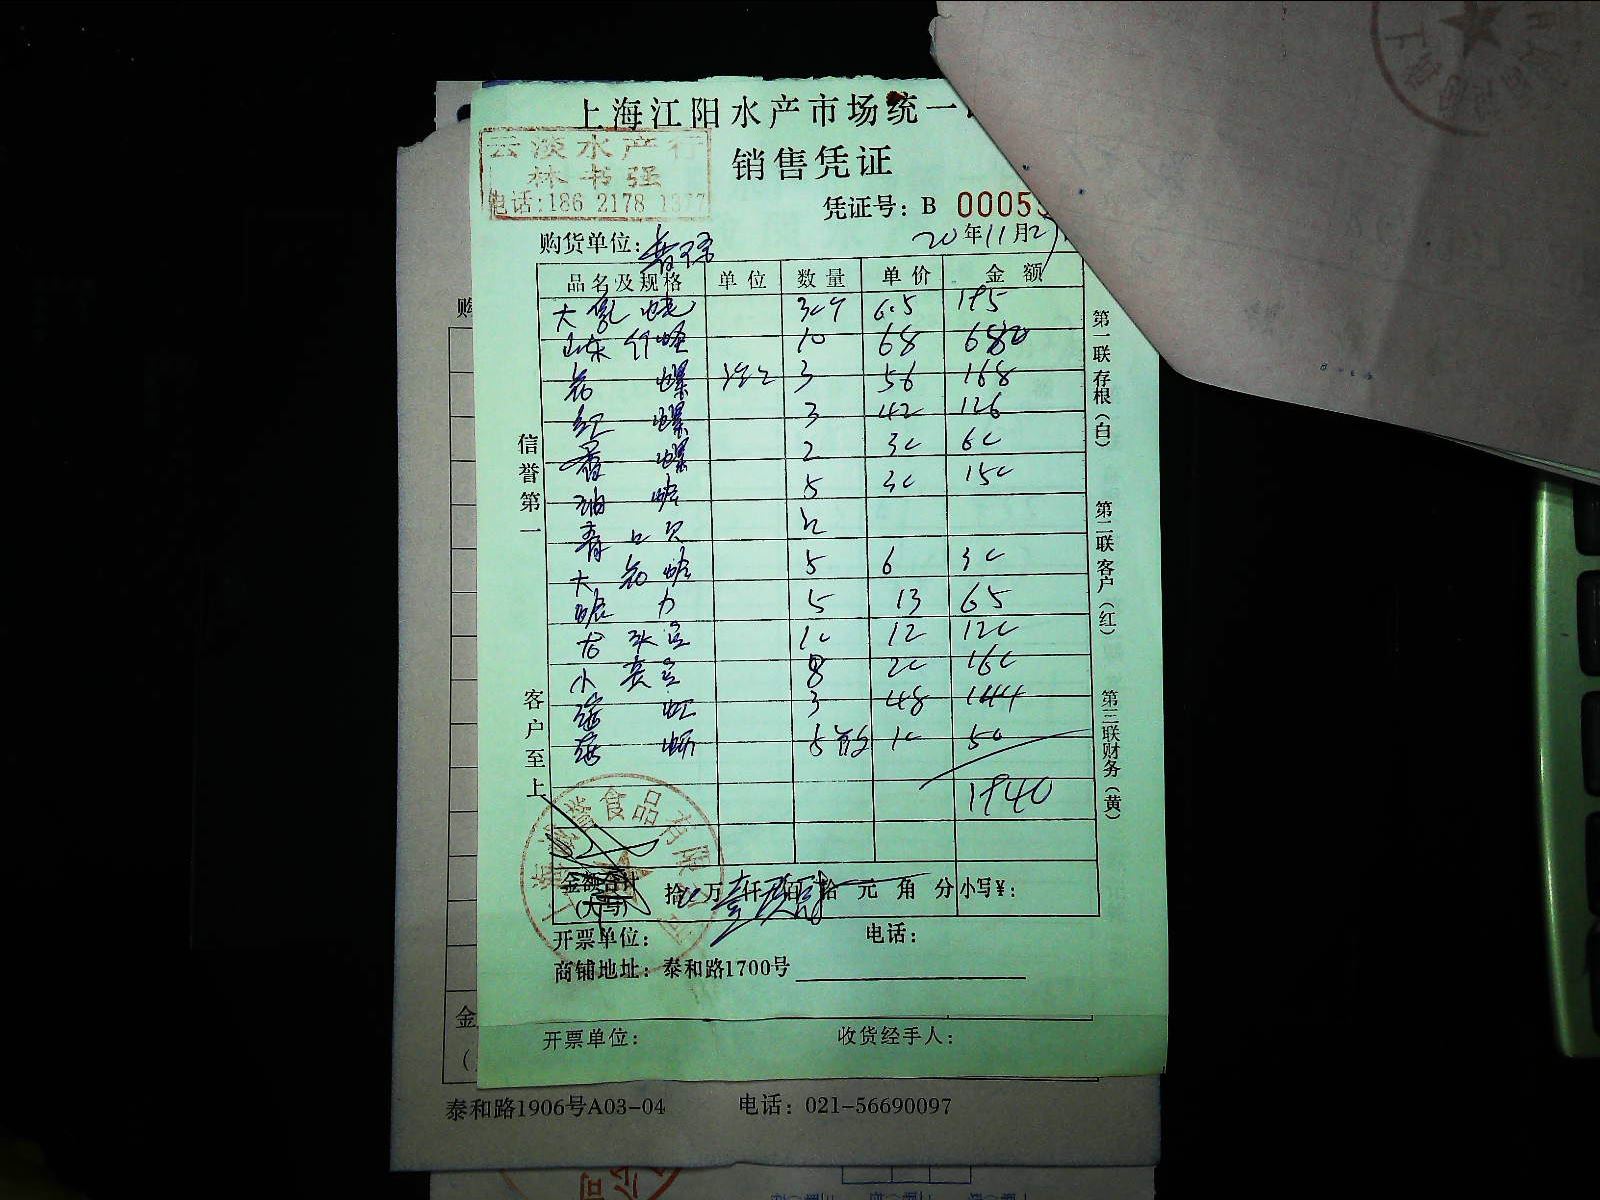 上海江阳水产市场统一
云淡水产行
林书强
电话:186 2178 1377
销售凭证
凭证号: B 00053
购货单位:
20年11月2
品名及规格 单位 数量 单价 金额
大 6.5 195
山东竹蛏 10 68 680
花螺 3 56 168
红螺 3 42 126
香螺 2 30 60
油蛤 5 30 150
青口贝
大花蛤 5 6 30
蛤力 5 13 65
10 12 120
小 8 20 160
3 48 144
5 10 50
1940
金额合计
(大写)
拾 万 仟 佰 拾 元 角 分 小写¥:
开票单位: 电话:
商铺地址: 泰和路1700号
信誉第一
客户至上
第一联存根(白)
第二联客户(红)
第三联财务(黄)
食品有限
开票单位: 收货经手人:
购
金
泰和路1906号A03-04 电话: 021-56690097
公司